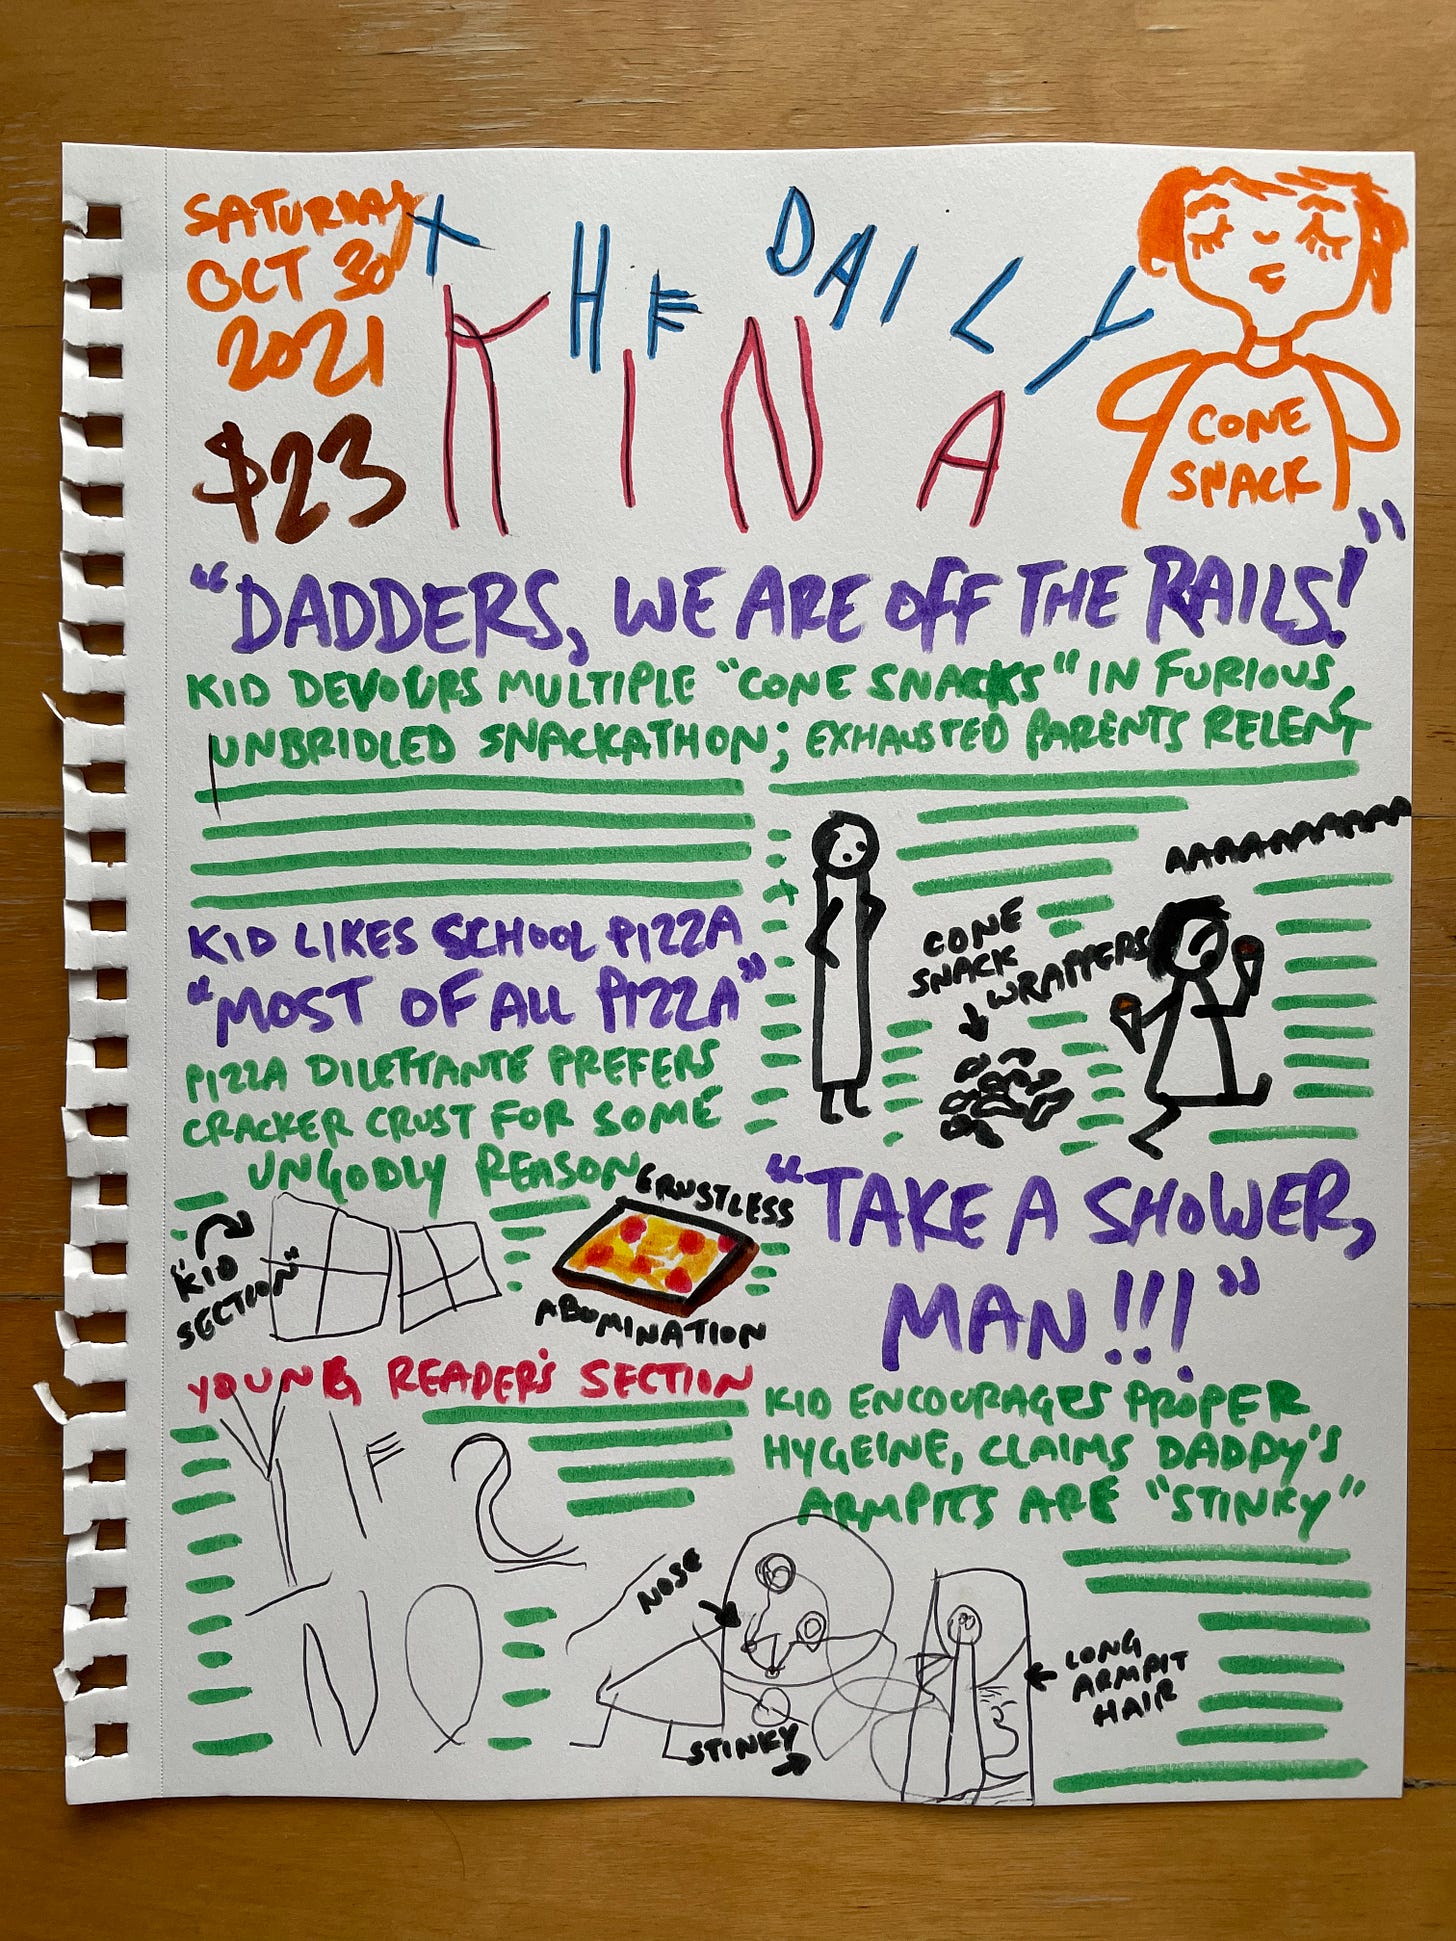 SATURDAY
OCT 30
2021
$23
THE DAILY
KINA
CONE
SNACK
"DADDERS, WE ARE OFF THE RAILS!"
KID DEVOURS MULTIPLE "CONE SNACKS" IN FURIOUS,
UNBRIDLED SNACKATHON; EXHAUSTED PARENTS RELENT
AAAAAAAAAAA
CONE
SNACK
WRAPPERS
KID LIKES SCHOOL PIZZA
"MOST OF ALL PIZZA"
PIZZA DILETTANTE PREFERS
CRACKER CRUST FOR SOME
UNGODLY REASON
"KID
SECTION"
CRUSTLESS
ABOMINATION
"TAKE A SHOWER,
MAN!!!"
KID ENCOURAGES PROPER
HYGEINE, CLAIMS DADDY'S
ARMPITS ARE "STINKY"
NOSE
STINKY
LONG
ARMPIT
HAIR
YOUNG READER'S SECTION
NO